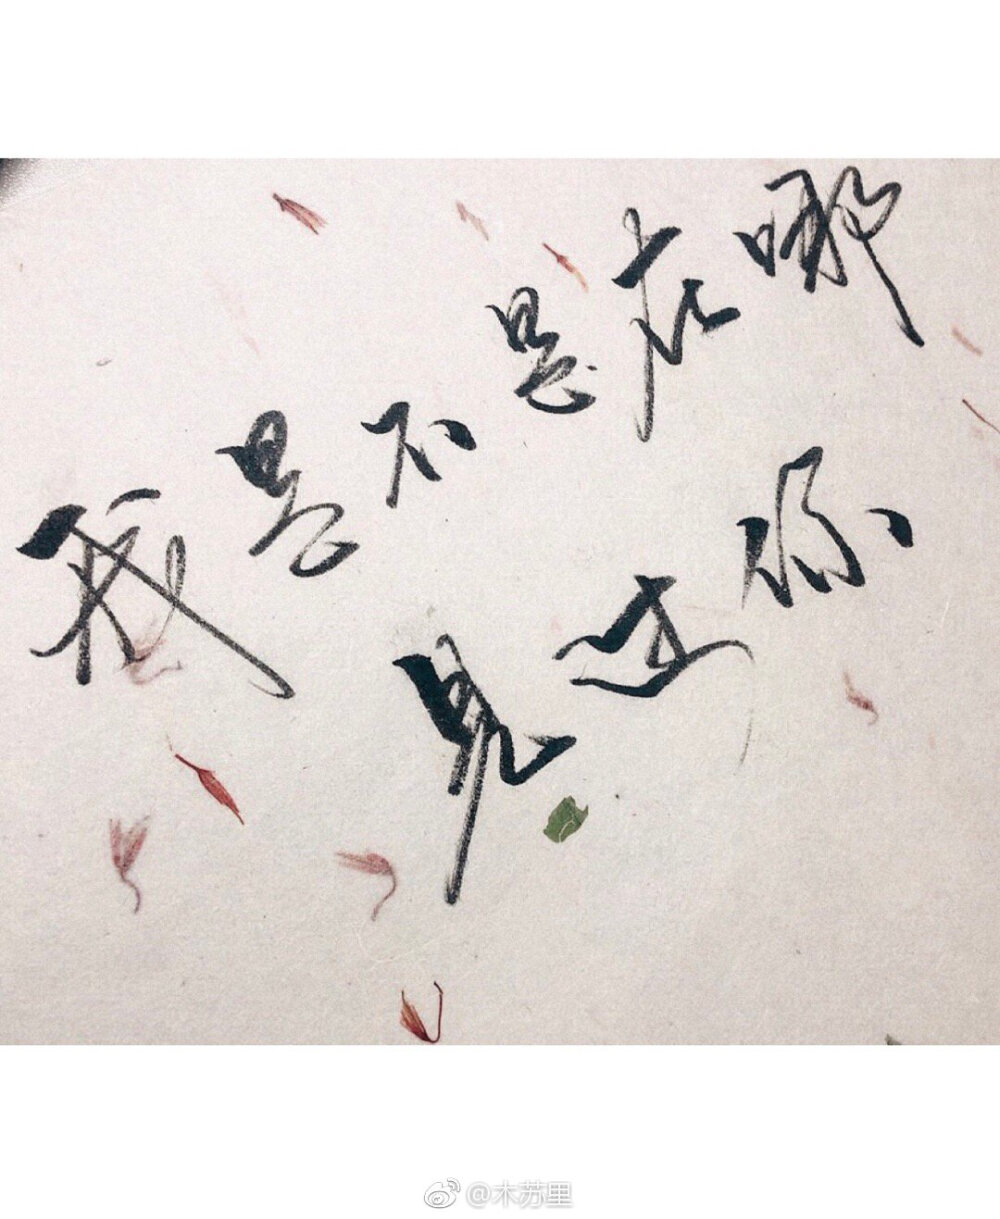 我是不是在哪
见过你
@木苏里